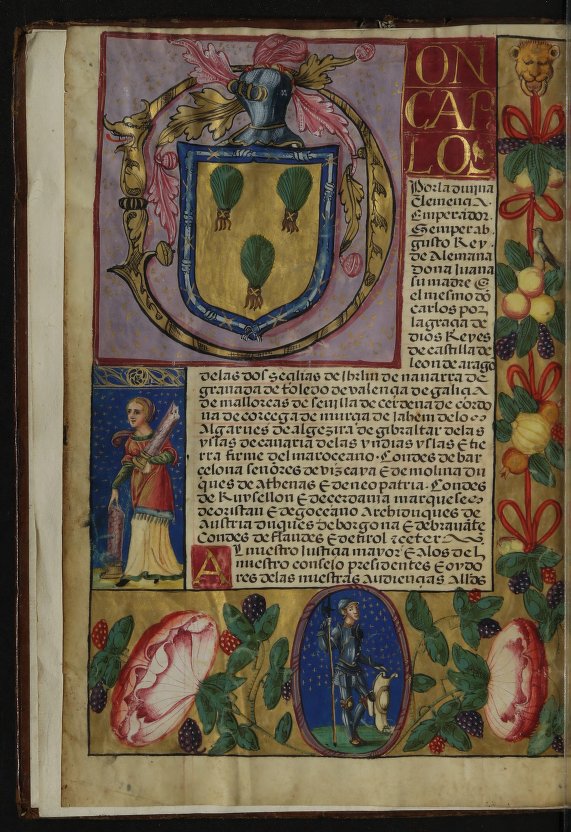 ON
CAR
LOS
Por la diuina
Clemençia
Emperador
Semper ab
gusto Rey
de Alemana
dona Juana
su madre E
el mesmo dõ
carlos por
la graçia de
dios Reyes
de castilla de
leon de arago
delas dos seçilias de Jhrlm de nauarra de
granada de toledo de valençia de galiçia
de mallorcas de seuilla de cerdena de cordo
ua de corcega de murçia de Jahem delos
Algarues de algezira de gibraltar de las
yslas de canaria de las yndias yslas E tie
rra firme del mar oceano. Condes de bar
celona senõres de vizcaya E de molina du
ques de Athenas E de neo patria. Condes
de Ruysellon E de cerdania marqueses
de oristan E de goceano Archiduques de
Austria duques de borgona E de brauãte
Condes de flandes E de tirol Etcetera
A y nuestro Justiçia mayor E Alos del
nuestro consejo presidentes E oydo
res delas nuestras Audiençias Allds